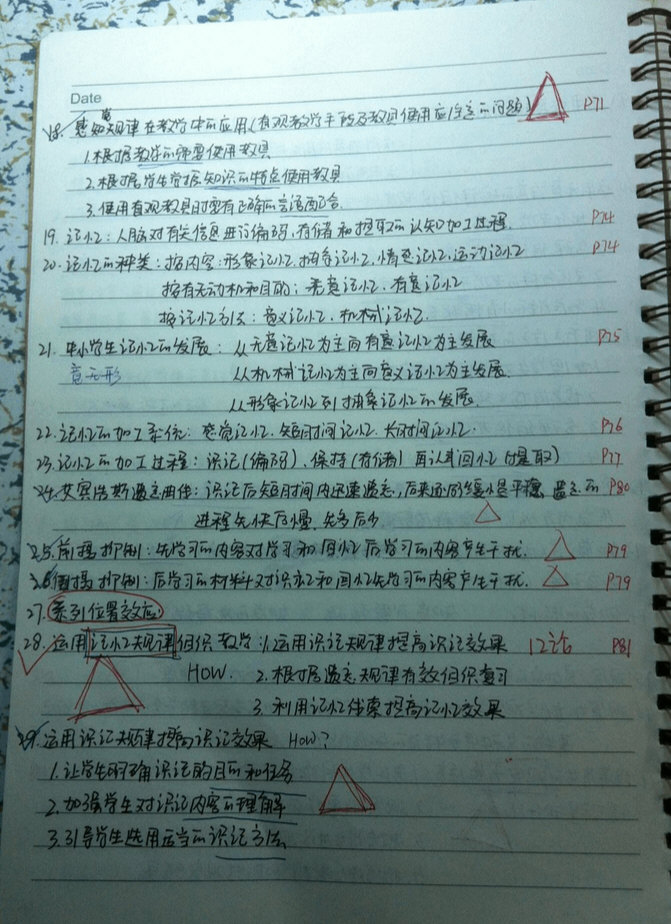 Date
18. 感知觉规律在教学中的应用(直观教学手段及教具使用应注意的问题) P71
1.根据教学的需要使用教具
2.根据学生掌握知识的特点使用教具
3.使用直观教具时要有正确的言语配合.
19. 记忆:人脑对有关信息进行编码、存储和提取的认知加工过程. P74
20. 记忆的种类:按内容:形象记忆、抽象记忆、情绪记忆、运动记忆 P74
按有无动机和目的:无意记忆、有意记忆
按记忆方法:意义记忆、机械记忆.
21. 中小学生记忆的发展:从无意记忆为主向有意记忆为主发展 P75
意无形 从机械记忆为主向意义记忆为主发展.
从形象记忆到抽象记忆的发展.
22. 记忆的加工系统:感觉记忆、短时间记忆、长时间记忆. P76
23. 记忆的加工过程:识记(编码)、保持(存储)再认和回忆(提取) P77
24. 艾宾浩斯遗忘曲线:识记后短时间内迅速遗忘,后来逐渐缓慢是平稳、遗忘的 P80
进程先快后慢、先多后少
25. 前摄抑制:先学习的内容对学习和回忆后学习的内容产生干扰. P79
26. 倒摄抑制:后学习的材料对识记和回忆先学习的内容产生干扰. P79
27. 系列位置效应:
28. 运用记忆规律组织教学:1.运用识记规律提高识记效果 P81
HOW. 2.根据遗忘规律有效组织复习
3.利用记忆线索提高记忆效果
29. 运用识记规律提高识记效果 How?
1.让学生明确识记的目的和任务
2.加强学生对识记内容的理解
3.引导学生选用适当的识记方法.